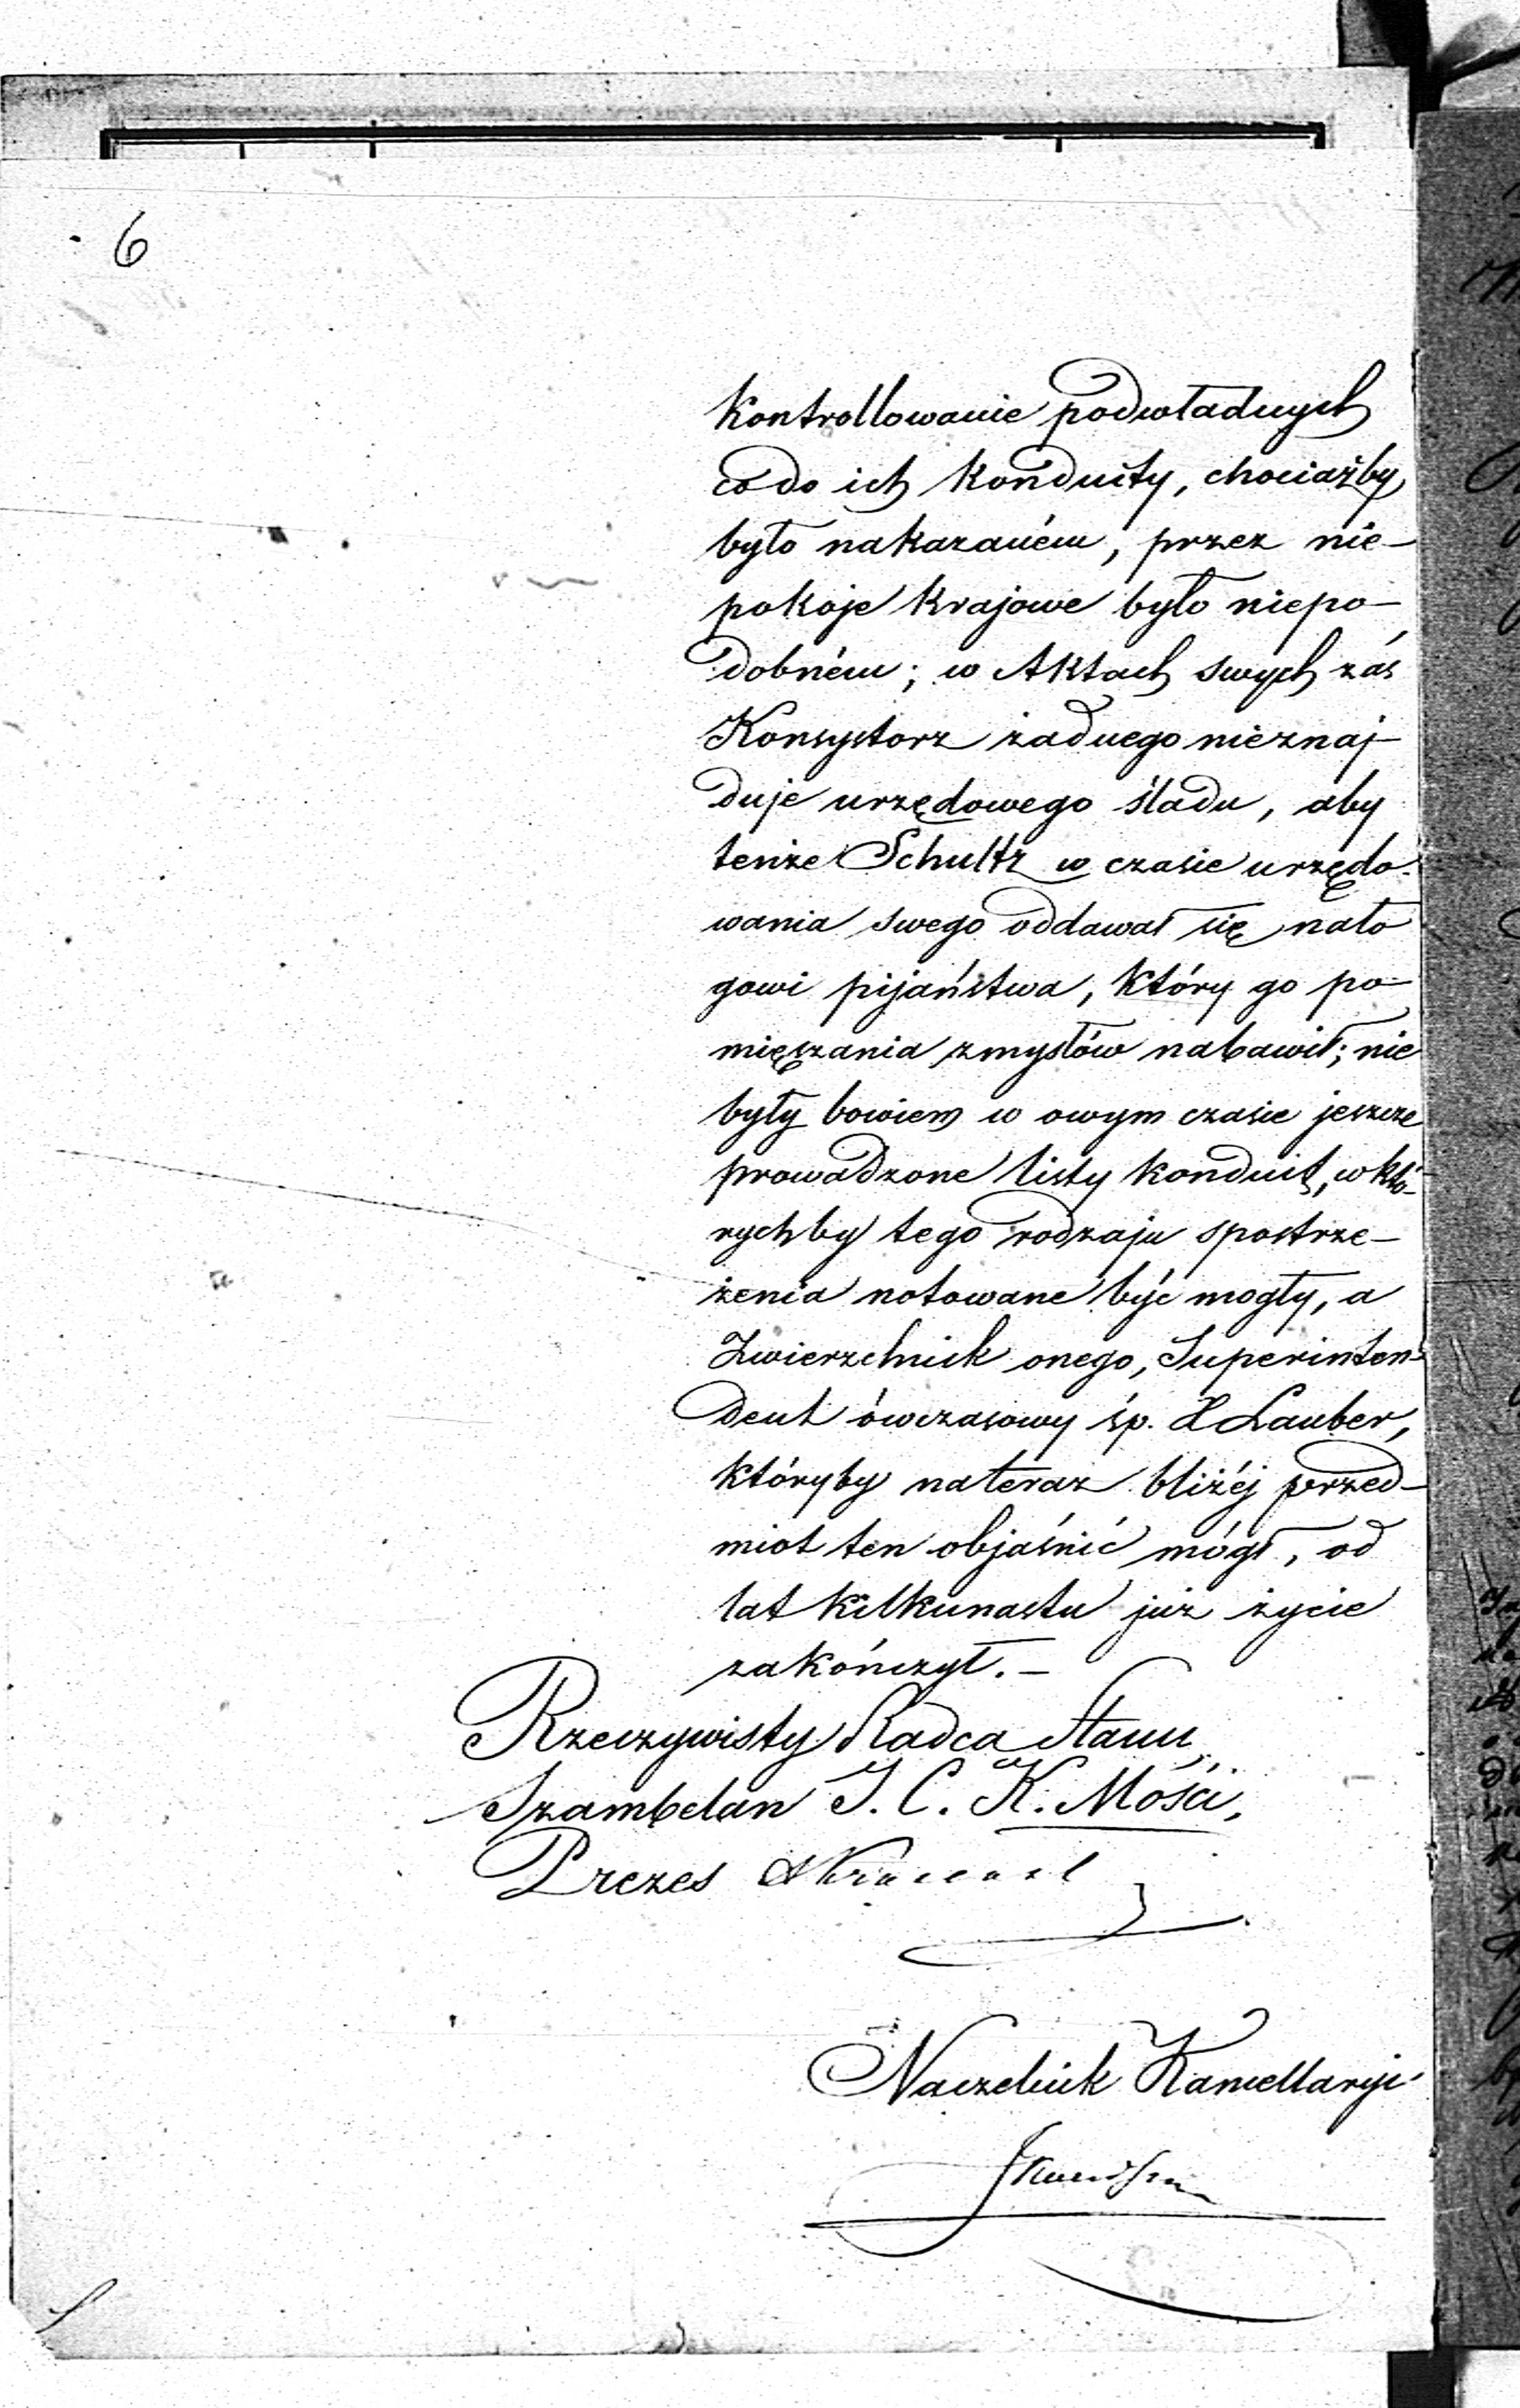 6
kontrollowanie podwładnych
co do ich konduity, chociażby
było nakazaném, przez nie-
pokoje krajowe było niepo-
dobném; w Aktach swych zaś
Konsystorz żadnego nieznaj-
duje urzędowego śladu, aby
tenże Schultz w czasie urzędo-
wania swego oddawał się nało
gowi pijaństwa, który go po-
mięszania zmysłów nabawił; nie
były bowiem w owym czasie jeszcze
prowadzone listy konduit, w któ-
rychby tego rodzaju spostrze-
żenia notowane być mogły, a
Zwierzchnik onego, Superinten-
dent ówczasowy śp. X Lauber,
któryby nateraz bliżéj przed-
miot ten objaśnić mógł, od
lat kilkunastu już życie
zakończył. -
Rzeczywisty Radca Stanu,
Szambelan J. C. K. Mości,
Prezes
Naczelnik Kancellaryi